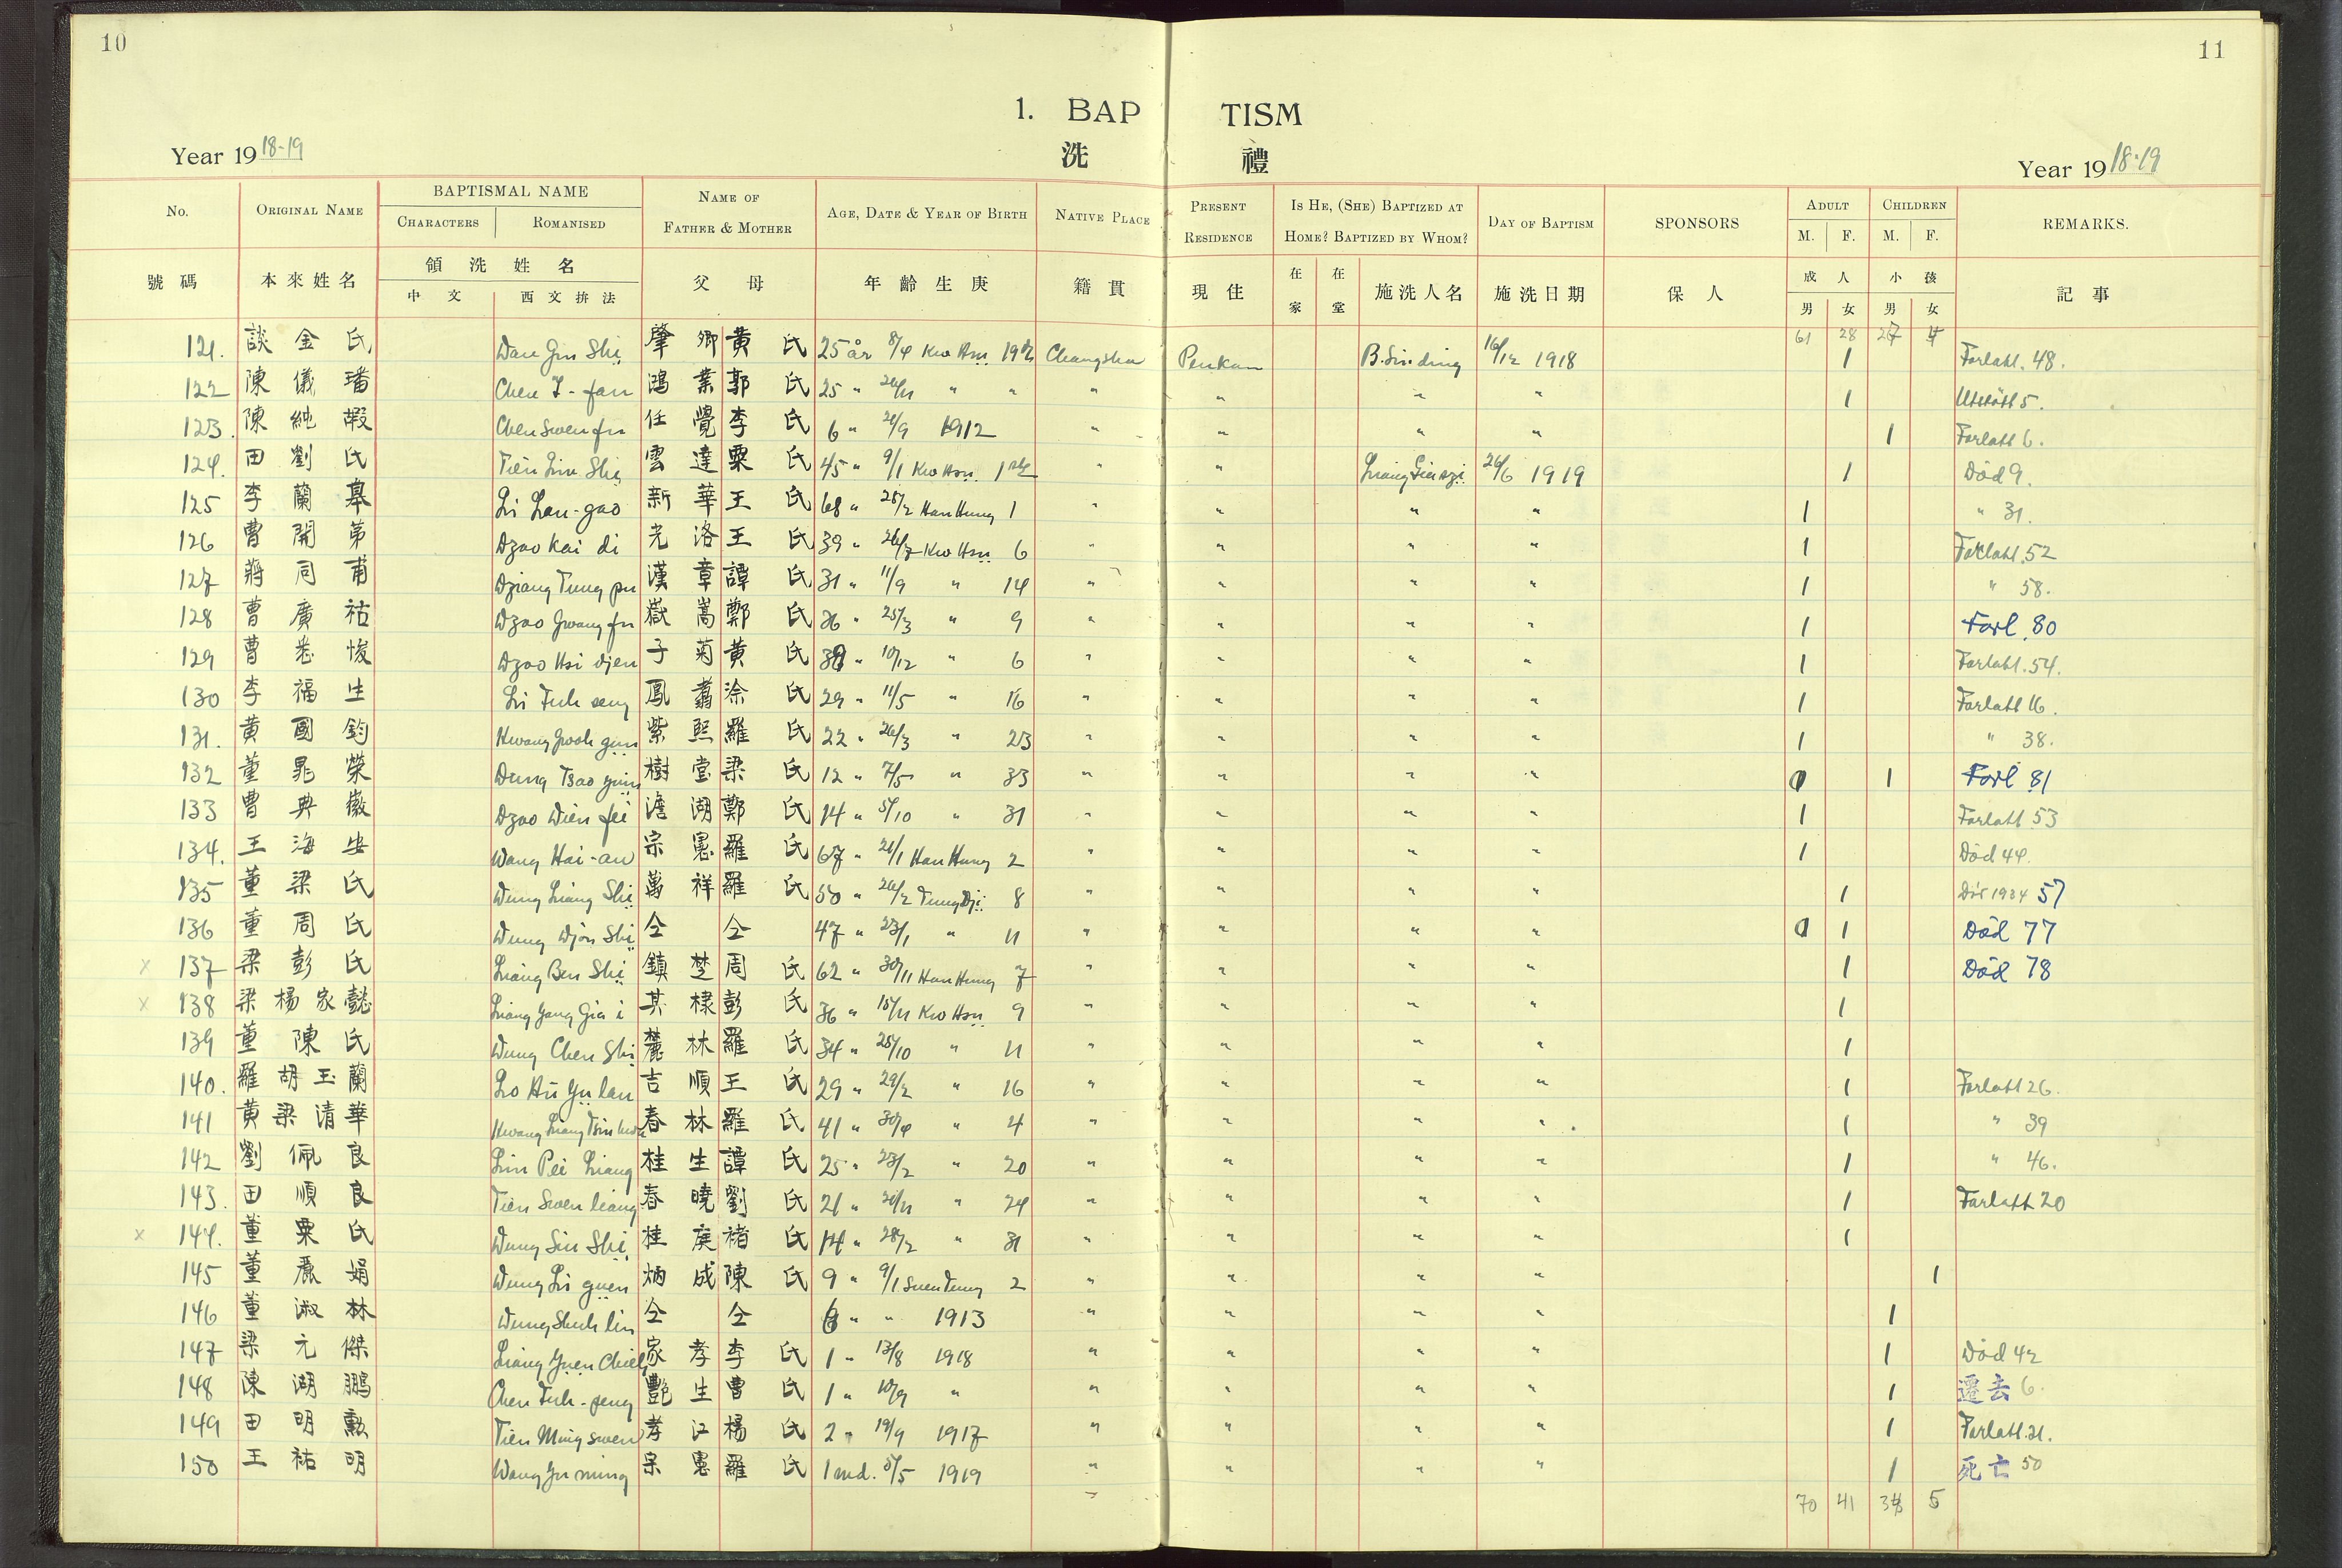 10
11
1. BAP TISM
洗 禮
Year 19 18-19
Year 19 18-19
No. ORIGINAL NAME BAPTISMAL NAME CHARACTERS ROMANISED NAME OF FATHER & MOTHER AGE, DATE & YEAR OF BIRTH NATIVE PLACE PRESENT RESIDENCE IS HE, (SHE) BAPTIZED AT HOME? BAPTIZED BY WHOM? DAY OF BAPTISM SPONSORS ADULT M. F. CHILDREN M. F. REMARKS.
號碼 本來姓名 領洗姓名 中文 西文拚法 父母 年齡生庚 籍貫 現住 在家 在堂 施洗人名 施洗日期 保人 成人 男 女 小孩 男 女 記事
61 28 4
121. 談金氏 Dan Gin Shi 肇卿 黄氏 25 år 8/4 Kwo Hsü 19 Changsha Penkan B. Sinding 16/12 1918 1 Forlatt. 48.
122 陳儀璠 Chen I-fan 鴻業 郭氏 25 " 26/11 " " " " " " 1 Utstött 5.
123. 陳純嘏 Chen Swen fu 任覺 李氏 6 " 21/9 1912 " " " " 1 Forlatt 6.
124. 田劉氏 Tien Liu Shi 雲達 粟氏 45 " 9/1 Kwo Hsü 1 " " 26/6 1919 1 Död 9.
125 李蘭皋 Li Lan-gao 新華 王氏 68 " 28/2 Han Hung 1 " " " " 1 " 31.
126 曹開第 Dzao Kai di 光洛 王氏 39 " 24/7 Kwo Hsü 6 " " " " 1 Forlatt. 52
127 蔣同甫 Dziang Tung pu 漢章 譚氏 31 " 11/9 " 14 " " " " 1 " 58.
128 曹廣祜 Dzao Gwang fu 嶽嵩 鄭氏 36 " 25/3 " 9 " " " " 1 Forl. 80
129 曹悉悛 Dzao Hsi djen 子菊 黄氏 10/12 " 6 " " " " 1 Forlatt. 54.
130 李福生 Li Fuh seng 鳳翥 涂氏 29 " 11/5 " 16 " " " " 1 Forlatt 16.
131. 黄國鈞 Hwang Gwoh gün 紫熙 羅氏 22 " 26/3 " 23 " " " " 1 " 38.
132 董晁榮 Dung Tsao yüin 樹堂 梁氏 12 " 7/5 " 33 " " " " 1 Forl 81
133 曹典徽 Dzao Dien fei 澹湖 鄭氏 14 " 5/10 " 31 " " " " 1 Forlatt 53
134. 王海安 Wang Hai-an 宗憲 羅氏 67 " 21/1 Han Hung 2 " " " " 1 Död 44.
135 董梁氏 Dung Liang Shi 萬祥 羅氏 50 " 26/2 Tung Dji 8 " " " " 1 Dör 1934 57
136 董周氏 Dung Djou Shi 仝 仝 47 " 23/1 " 11 " " " " 1 Död 77
x 137 梁彭氏 Liang Ben Shi 鎮楚 周氏 62 " 30/11 Han Hung 7 " " " " 1 Död 78
x 138 梁楊家懿 Liang Yang Gia i 其棣 彭氏 36 " 15/11 Kwo Hsü 9 " " " " 1
139 董陳氏 Dung Chen Shi 麓林 羅氏 34 " 25/10 " 11 " " " " 1
140. 羅胡玉蘭 Lo Hu Yu lan 吉順 王氏 29 " 29/2 " 16 " " " " 1 Forlatt 26.
141 黄梁清華 Hwang Liang Tsin hwa 春林 羅氏 41 " 30/4 " 4 " " " " 1 " 39
142 劉佩良 Liu Pei Liang 桂生 譚氏 25 " 23/2 " 20 " " " " 1 " 46.
143. 田順良 Tien Swen liang 春曉 劉氏 21 " 21/11 " 24 " " " " 1 Forlatt 20
x 144. 董粟氏 Dung Siu Shi 桂庚 褚氏 14 " 28/2 " 31 " " " " 1
145 董麗娟 Dung Li güen 炳成 陳氏 9 " 9/1 Suen Tung 2 " " " " 1
146 董淑林 Dung Shuh lin 仝 仝 6 " " 1913 " " " " 1
147 梁元傑 Liang Yuen Chieh 家孝 李氏 1 " 13/8 1918 " " " " 1 Död 42
148 陳湖鵬 Chen Fuh-peng 艷生 曹氏 1 " 10/9 " " " " " 1 遷去 6.
149 田明勳 Tien Ming swen 孝江 楊氏 2 " 19/9 1917 " " " " 1 Forlatt. 21.
150 王祐明 Wang Yu ming 宗憲 羅氏 1 md. 5/5 1919 " " " " 1 死亡 50
70 41 5